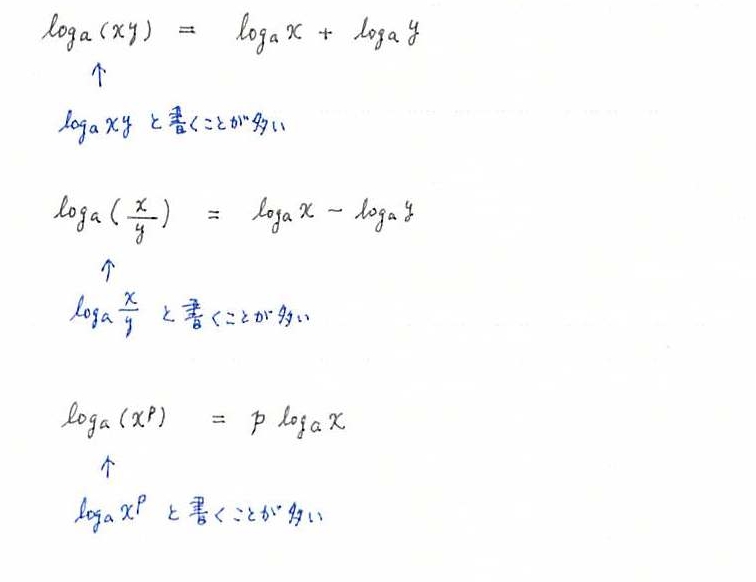 logₐ(xy) = logₐx + logₐy
↑
logₐxy と書くことが多い
logₐ(x/y) = logₐx − logₐy
↑
logₐx/y と書くことが多い
logₐ(xᵖ) = p logₐx
↑
logₐxᵖ と書くことが多い